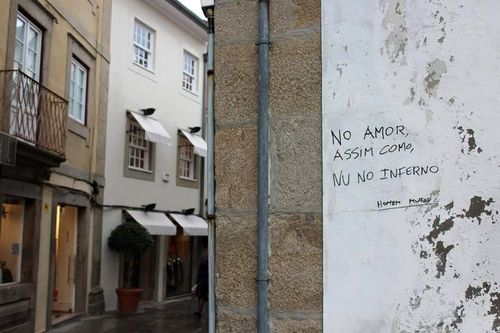 NO AMOR,
ASSIM COMO,
NU NO INFERNO
HOMEM